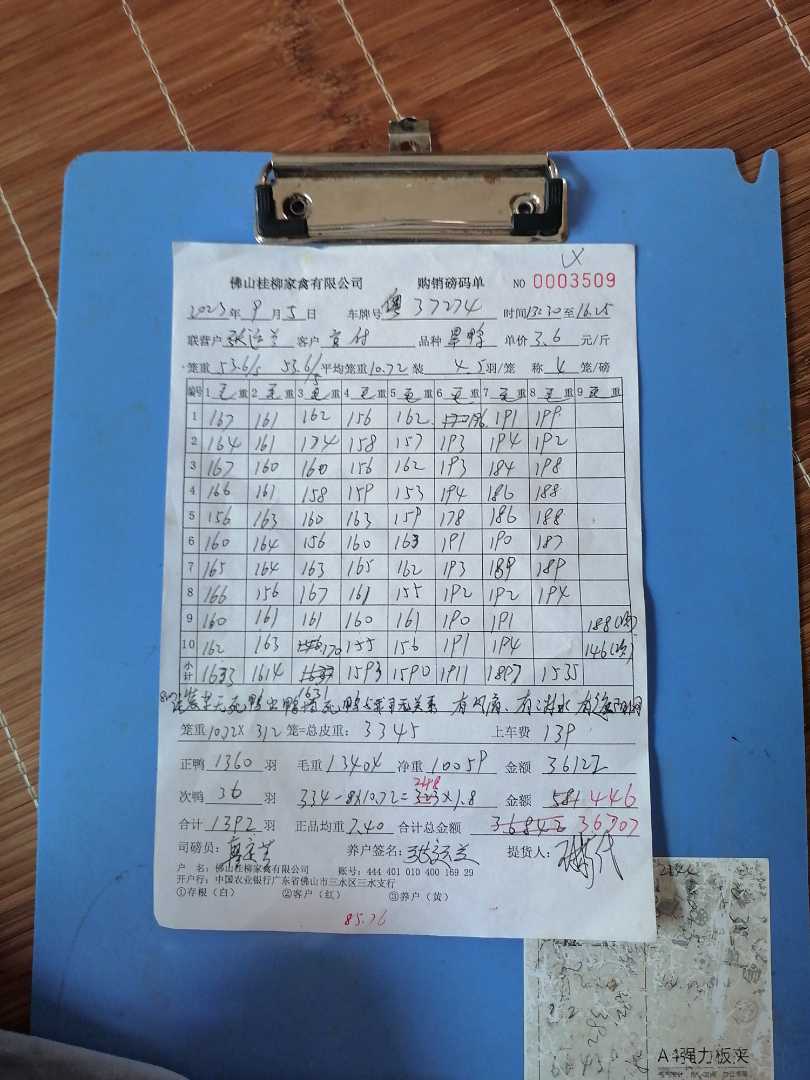 佛山桂柳家禽有限公司 购销磅码单 NO 0003509
2023年 9月 5日 车牌号 粤 37274 时间13:30至16:25
联营户 张运兰 客户 品种 单价3.6元/斤
笼重53.6/5 53.6/5 平均笼重10.72 装 45羽/笼 称 4 笼/磅
编号 1毛重 2毛重 3毛重 4毛重 5毛重 6毛重 7毛重 8毛重 9毛重
1 167 161 162 156 162 196 191 199
2 164 161 174 158 157 193 194 192
3 167 160 160 156 162 193 184 198
4 166 161 158 159 153 194 186 188
5 156 163 160 163 159 178 186 188
6 160 164 156 160 163 191 190 187
7 165 164 163 165 162 193 189 189
8 166 156 167 161 155 192 192 194
9 160 161 161 160 161 190 191 188(次)
10 162 163 170 155 156 191 194 146(次)
小计 1633 1614 1593 1590 1911 1897 1535
1631
笼重10.72× 312 笼=总皮重: 3345 上车费 139
正鸭 1360 羽 毛重 13404 净重 10059 金额 36122
248
次鸭 36 羽 334-8×10.72= 323×1.8 金额 581 446
合计 1392 羽 正品均重 7.40 合计总金额 36842 36307
司磅员: 养户签名: 张运兰 提货人:
户 名: 佛山桂柳家禽有限公司 账号: 444 401 010 400 169 29
开户行: 中国农业银行广东省佛山市三水区三水支行
①存根(白) ②客户(红) ③养户(黄)
85.76
A4强力板夹